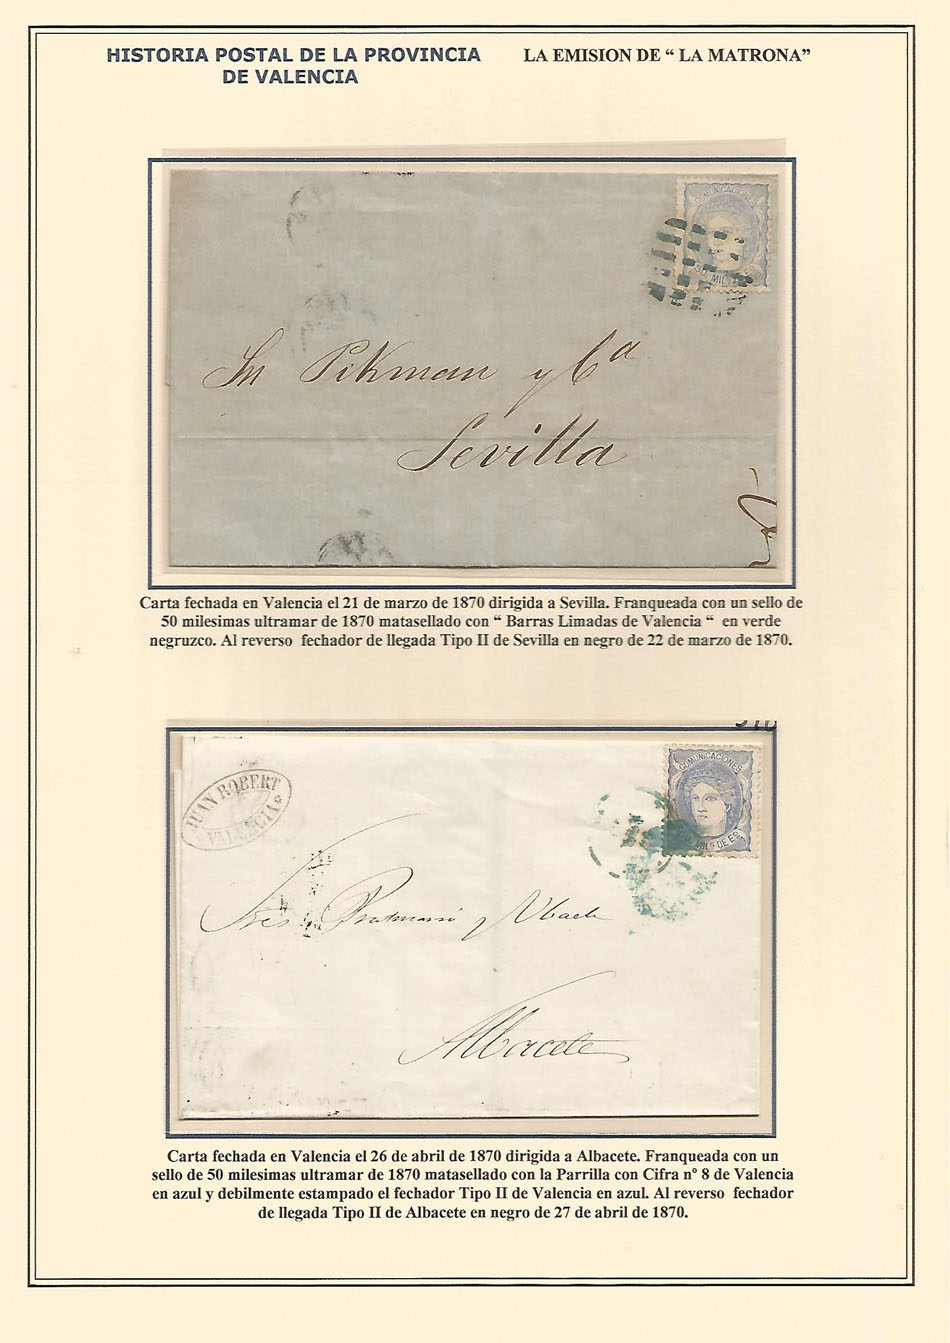 HISTORIA POSTAL DE LA PROVINCIA
DE VALENCIA
LA EMISION DE “ LA MATRONA”
COMUNICACIONES
Sres Pikman y Cª
Sevilla
Carta fechada en Valencia el 21 de marzo de 1870 dirigida a Sevilla. Franqueada con un sello de
50 milesimas ultramar de 1870 matasellado con “ Barras Limadas de Valencia “ en verde
negruzco. Al reverso fechador de llegada Tipo II de Sevilla en negro de 22 de marzo de 1870.
COMUNICACIONES
MILS DE ES
JUAN ROBERT
VALENCIA
Sres
y
Albacete
Carta fechada en Valencia el 26 de abril de 1870 dirigida a Albacete. Franqueada con un
sello de 50 milesimas ultramar de 1870 matasellado con la Parrilla con Cifra nº 8 de Valencia
en azul y debilmente estampado el fechador Tipo II de Valencia en azul. Al reverso fechador
de llegada Tipo II de Albacete en negro de 27 de abril de 1870.